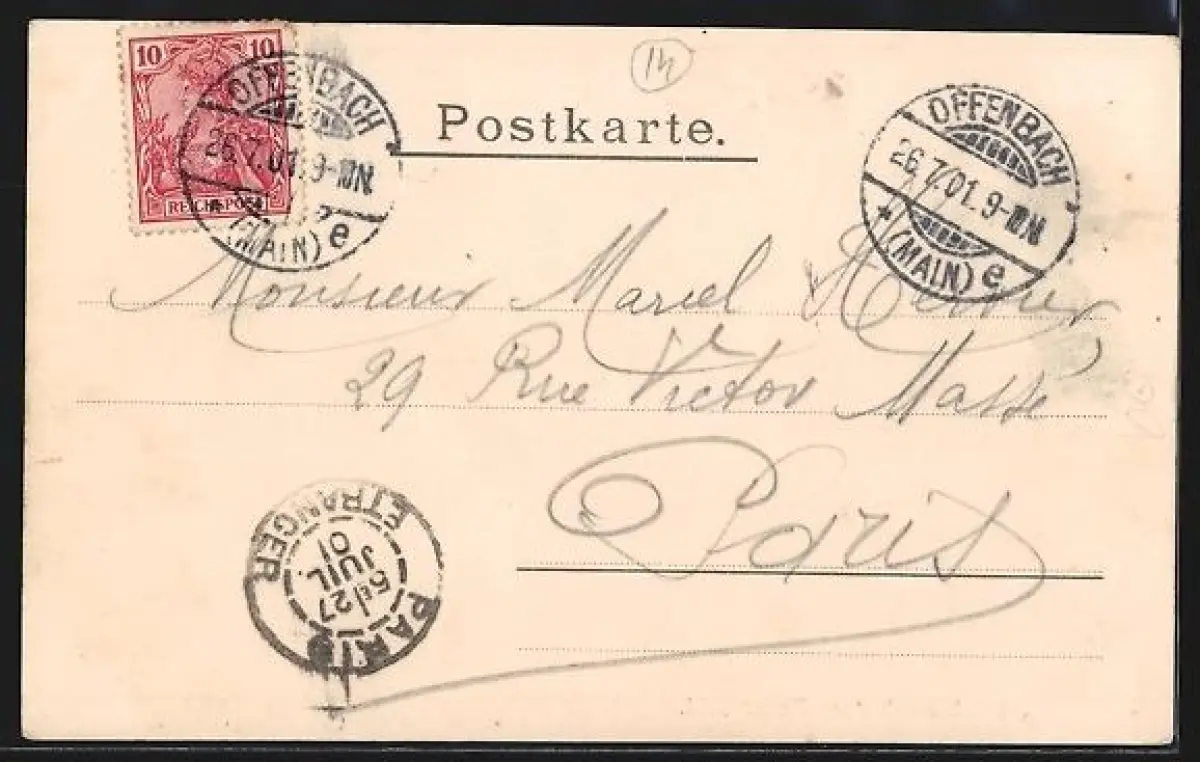 10 10
REICHSPOST
OFFENBACH
26.7.01.9-10N.
* (MAIN) e
14
Postkarte.
OFFENBACH
26.7.01.9-10N.
* (MAIN) e
Monsieur Marcel
29 Rue Victor Massé
Paris
PARIS ETRANGER
27
JUIL
01